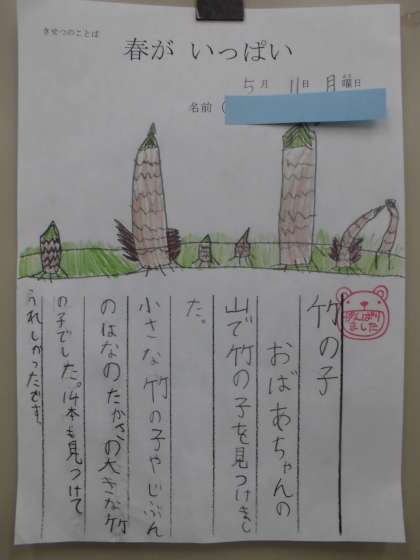 きせつのことば
春が いっぱい
5月 11日 月曜日
名前
がんばり
ました
竹の子
おばあちゃんの
山で竹の子を見つけまし
た。
小さな竹の子やじぶん
のはなのたかさの大きな竹
の子でした。14本も見つけて
うれしかったです。